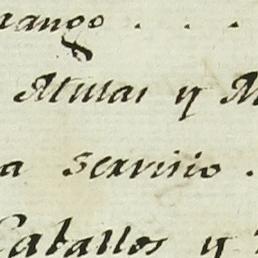 rango . . .
Mulas y M
a servicio .
Caballos y